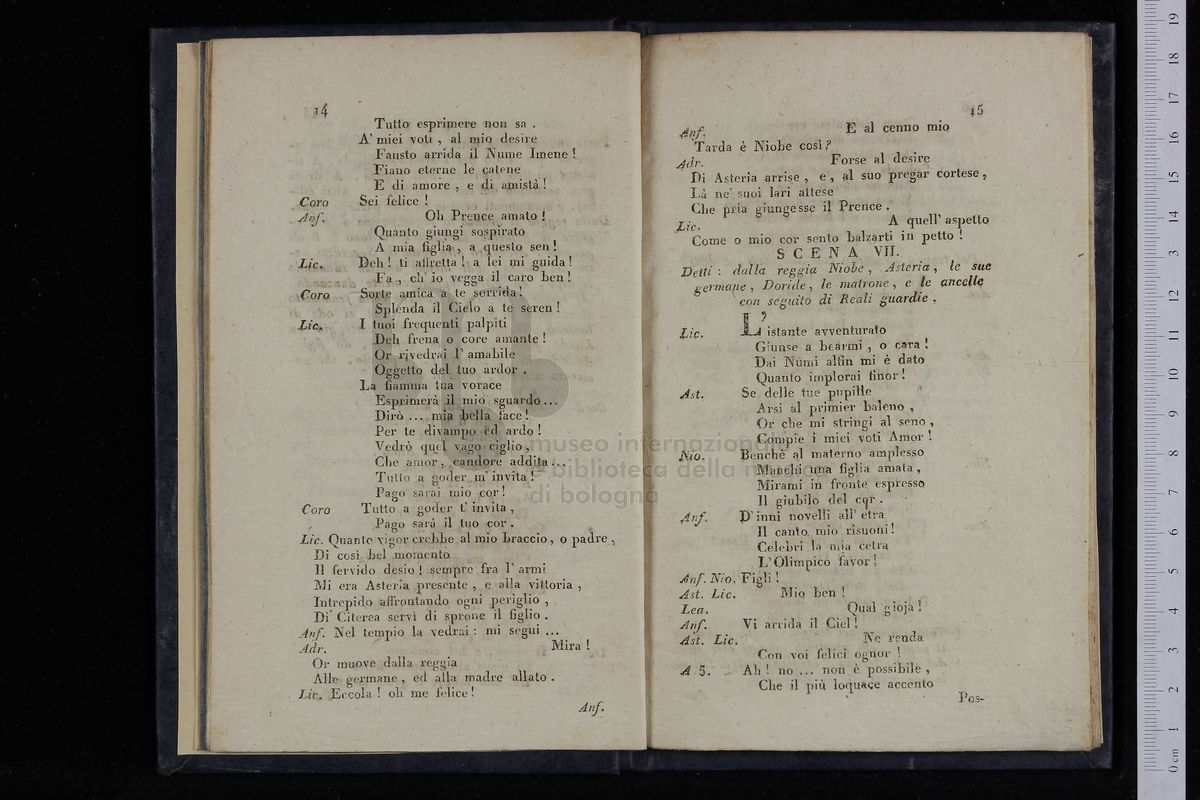 14
Tutto esprimere non sa .
A' miei voti , al mio desire
Fausto arrida il Nume Imene !
Fiano eterne le catene
E di amore , e di amistà !
Coro Sei felice !
Anf. Oh Prence amato !
Quanto giungi sospirato
A mia figlia , a questo sen !
Lic. Deh ! ti affretta ! a lei mi guida !
Fa , ch' io vegga il caro ben !
Coro Sorte amica a te sorrida !
Splenda il Cielo a te seren !
Lic. I tuoi frequenti palpiti
Deh frena o core amante !
Or rivedrai l' amabile
Oggetto del tuo ardor .
La fiamma tua vorace
Esprimerà il mio sguardo ...
Dirò ... mia bella face !
Per te divampo ed ardo !
Vedrò quel vago ciglio ,
Che amor , candore addita ...
Tutto a goder m' invita !
Pago sarai mio cor !
Coro Tutto a goder t' invita ,
Pago sarà il tuo cor .
Lic. Quanto vigor crebbe al mio braccio , o padre ,
Di così bel momento
Il fervido desio ! sempre fra l' armi
Mi era Asteria presente , e alla vittoria ,
Intrepido affrontando ogni periglio ,
Di Citerea servì di sprone il figlio .
Anf. Nel tempio la vedrai : mi segui ...
Adr. Mira !
Or muove dalla reggia
Alle germane , ed alla madre allato .
Lic. Eccola ! oh me felice !
Anf.
15
Anf. E al cenno mio
Tarda è Niobe così ?
Adr. Forse al desire
Di Asteria arrise , e , al suo pregar cortese ,
Là ne' suoi lari attese
Che pria giungesse il Prence .
Lic. A quell' aspetto
Come o mio cor sento balzarti in petto !
SCENA VII.
Detti : dalla reggia Niobe , Asteria , le sue
germane , Doride , le matrone , e le ancelle
con seguito di Reali guardie .
Lic. L' istante avventurato
Giunse a bearmi , o cara !
Dai Numi alfin mi è dato
Quanto implorai finor !
Ast. Se delle tue pupille
Arsi al primier baleno ,
Or che mi stringi al seno ,
Compie i miei voti Amor !
Nio. Benchè al materno amplesso
Manchi una figlia amata ,
Mirami in fronte espresso
Il giubilo del cor .
Anf. D' inni novelli all' etra
Il canto mio risuoni !
Celebri la mia cetra
L' Olimpico favor !
Anf. Nio. Figli !
Ast. Lic. Mio ben !
Lea. Qual gioja !
Anf. Vi arrida il Ciel !
Ast. Lic. Ne renda
Con voi felici ognor !
A 5. Ah ! no ... non è possibile ,
Che il più loquace accento
Pos-
museo internazionale
e biblioteca della m
di bologna
0 cm 1 2 3 4 5 6 7 8 9 10 11 12 13 14 15 16 17 18 19